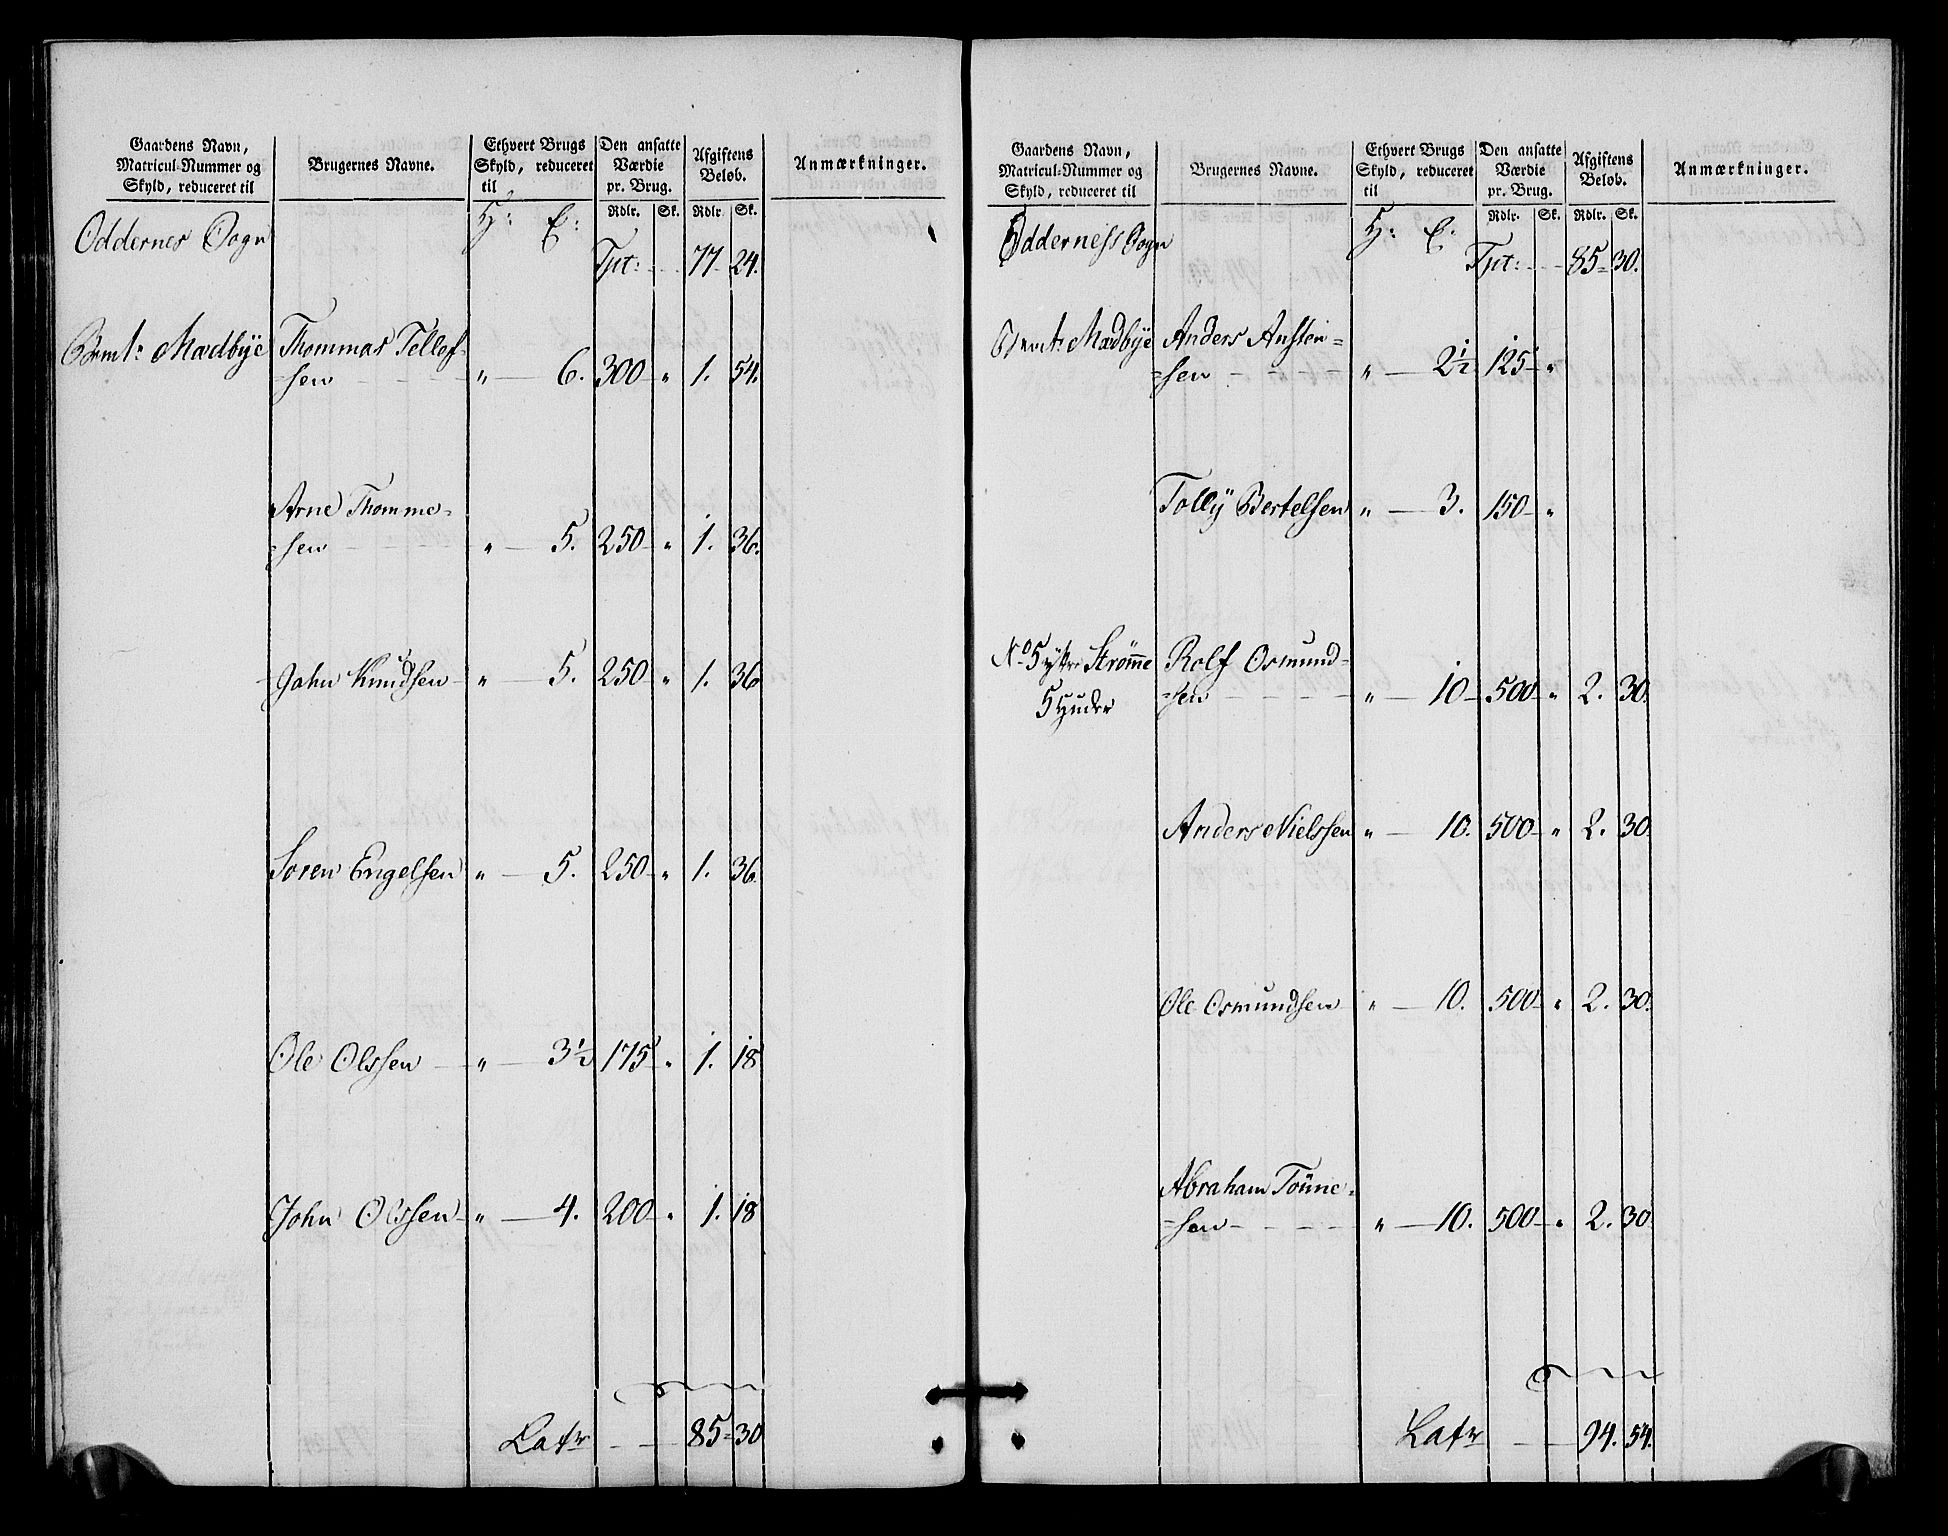 Gaardens Navn,
Matricul-Nummer og
Skyld, reduceret til
Brugernes Navne.
Ethvert Brugs
Skyld, reduceret
til
Den ansatte
Værdie
pr. Brug.
Afgiftens
Beløb.
Anmærkninger.
Rdlr. Sk. Rdlr. Sk.
Oddernes Sogn H: E:
Tpt: 77 24.
Mædbÿe Thommas Tellef-
=sen „ 6. 300 „ 1. 54.
Arne Thomme=
=sen „ 5. 250 „ 1. 36.
John Knudsen „ 5. 250 „ 1. 36
Soren Engelsen „ 5. 250 „ 1. 36.
Ole Olssen „ 3½ 175 „ 1. 18
John Olssen „ 4. 200 „ 1. 18
Latr 85 30
Gaardens Navn,
Matricul-Nummer og
Skyld, reduceret til
Brugernes Navne.
Ethvert Brugs
Skyld, reduceret
til
Den ansatte
Værdie
pr. Brug.
Afgiftens
Beløb.
Anmærkninger.
Rdlr. Sk. Rdlr. Sk.
Odderness Sogn H: E:
Tpt: 85 30.
Mædbÿe Anders Austen=
=sen „ 2½ 125 „
Tollÿ Bertelsen „ 3. 150 „
No 5 ÿtre Strømme Rolf Osmund=
5 Huder =sen „ 10 500 „ 2. 30.
Anders Nielssen „ 10. 500 „ 2. 30.
Ole Osmundsen „ 10. 500 „ 2. 30.
Abraham Tönne=
=sen „ 10. 500 „ 2. 30
Latr 94. 54.